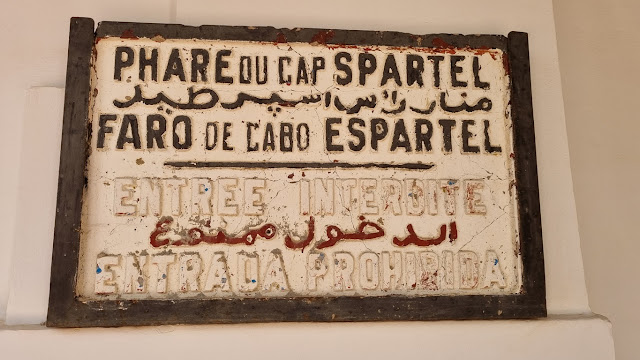 PHARE DU CAP SPARTEL
منار رأس اسپرطيل
FARO DE CABO ESPARTEL
ENTREE INTERDITE
الدخول ممنوع
ENTRADA PROHIBIDA